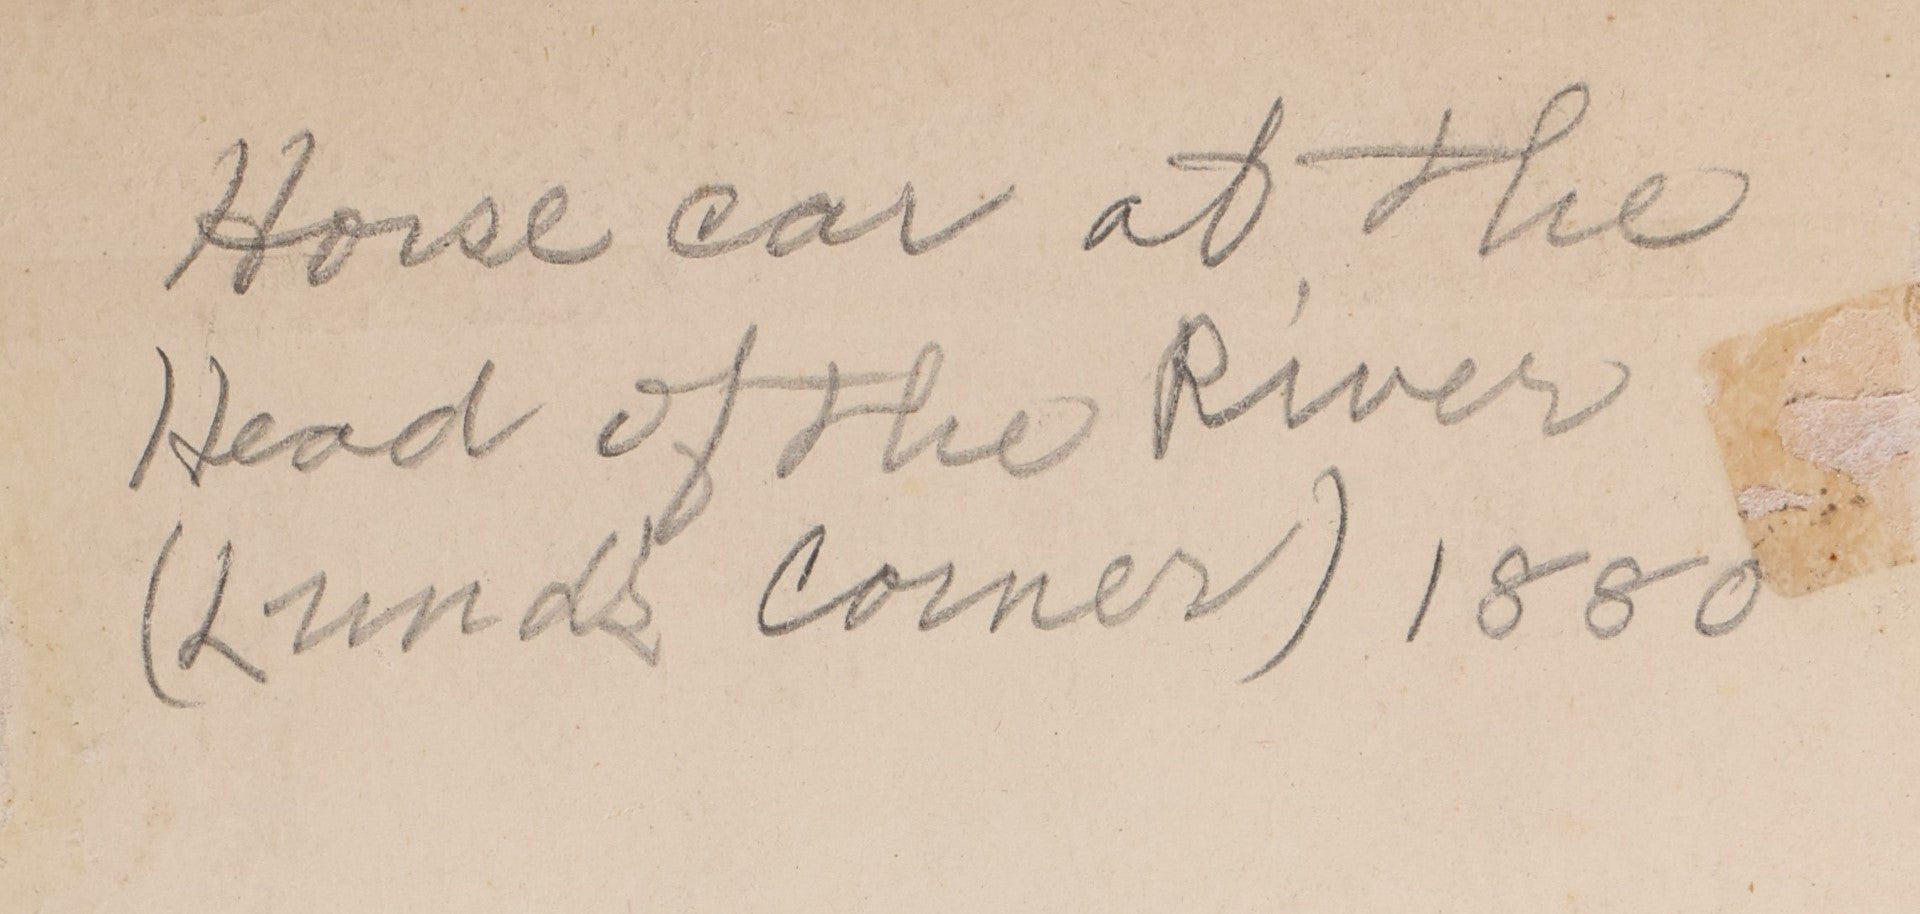 Horse car at the
Head of the River
(Lund's Corner) 1880